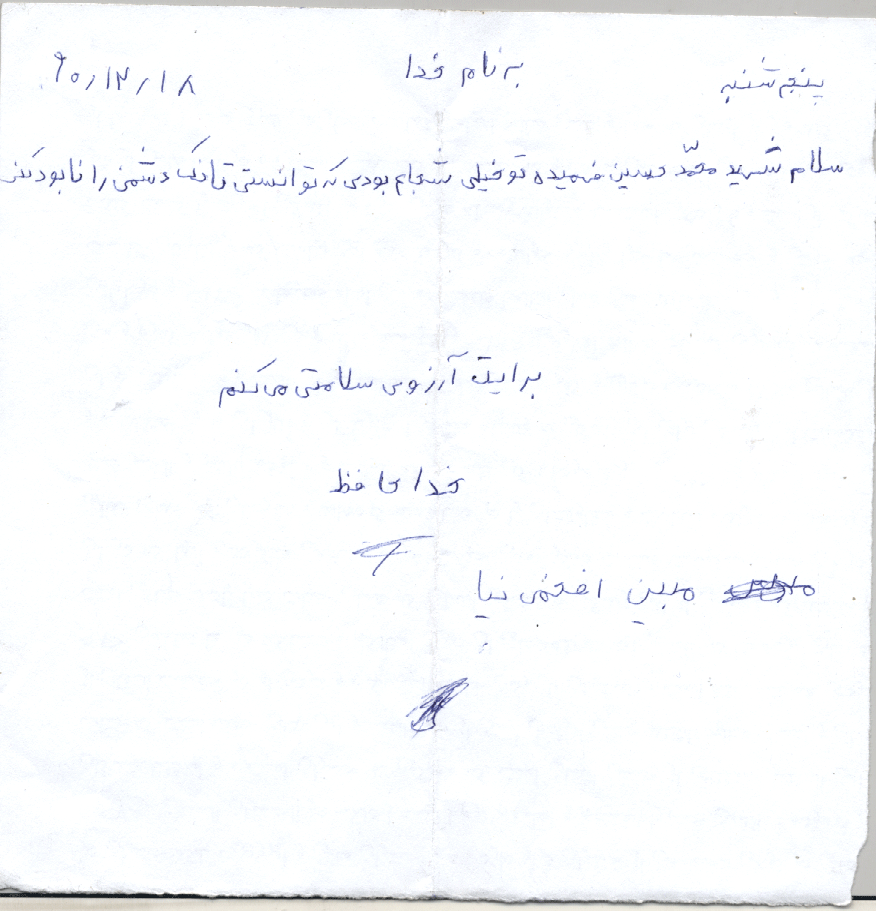 پنجم شنبه به نام خدا ۹۰/۱۲/۱۸
سلام شهید محمّد حسین فهمیده تو خیلی شجاع بودی که توانستی تانک دشمن را نابود کنی
برایت آرزوی سلامتی می‌کنم
خدا حافظ
مبین نیا